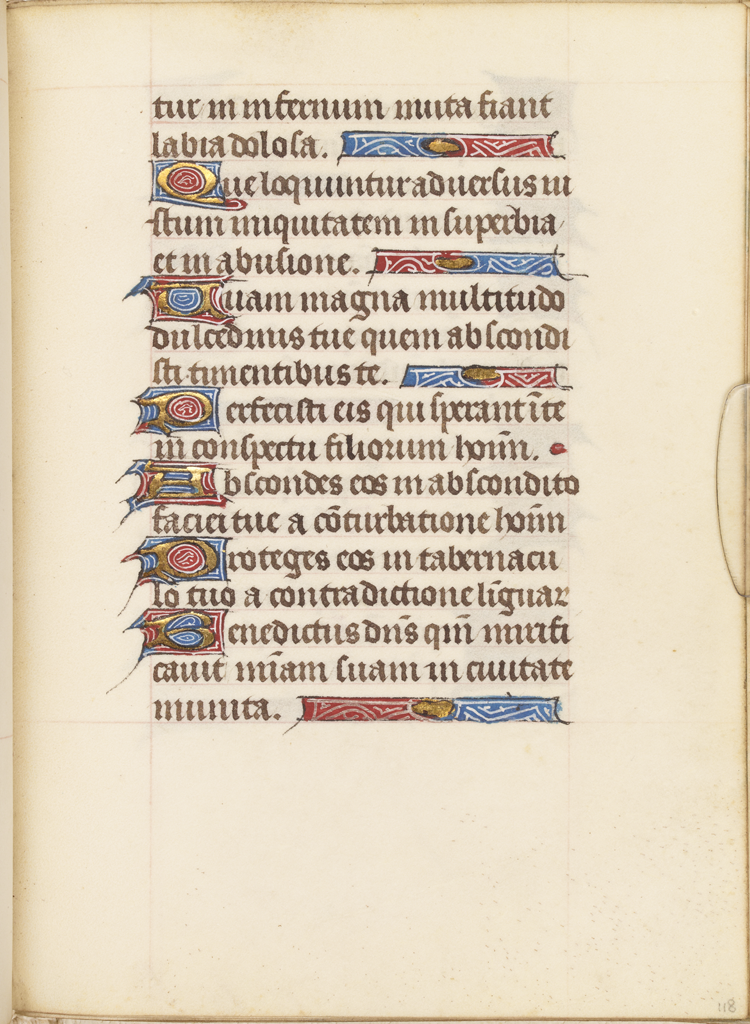 tur in infernum muta fiant
labia dolosa.
Que loquuntur aduersus iu
stum iniquitatem in superbia
et in abusione.
Quam magna multitudo
dulcedinis tue quem abscondi
sti timentibus te.
Perfecisti eis qui sperant ī te
in conspectu filiorum hoīn.
Abscondes eos in abscondito
faciei tue a cōturbatione hoīn
Proteges eos in tabernacu
lo tuo a contradictione līguar
Benedictus dn̄s qm̄ mirifi
cauit mīam suam in ciuitate
munita.
118